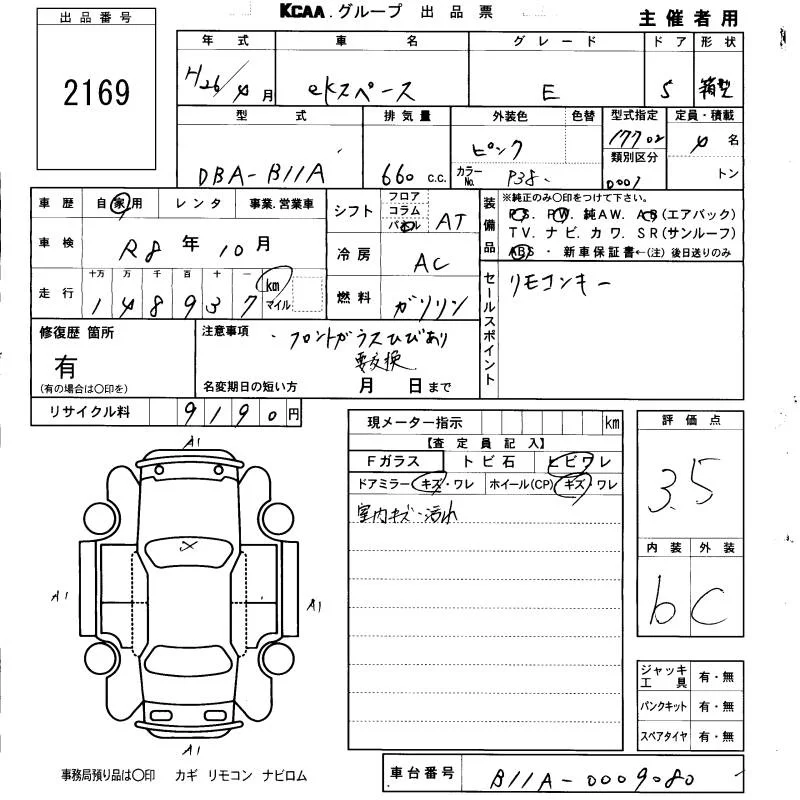 KCAA.グループ 出品票
主催者用
出品番号
2169
年式 車名 グレード ドア 形状
H26/4月 ekスペース E 5 箱型
型式 排気量 外装色 色替 型式指定 定員・積載
DBA-B11A 660 c.c. ピンク 17702 4名
カラーNo. P38 類別区分 0007 トン
車歴 自家用 レンタ 事業.営業車
シフト フロア コラム パネル AT
装備品 ※純正のみ〇印をつけて下さい。
PS. PW. 純AW. AB(エアバック)
TV. ナビ. カワ. SR(サンルーフ)
ABS・新車保証書←(注)後日送りのみ
車検 R8年10月
冷房 AC
走行 十万 万 千 百 十 一 km マイル
148937
燃料 ガソリン
セールスポイント リモコンキー
修復歴 箇所
有
(有の場合は〇印を)
注意事項 ・フロントガラスひびあり
要交換
名変期日の短い方 月 日まで
リサイクル料 9190円
現メーター指示 km
【査定員記入】
Fガラス トビ石 ヒビワレ
ドアミラー キズ・ワレ ホイール(CP) キズ・ワレ
室内キズ・汚れ
評価点
3.5
内装 外装
b C
A1
X
A1 A1
A1
ジャッキ工具 有・無
パンクキット 有・無
スペアタイヤ 有・無
事務局預り品は〇印 カギ リモコン ナビロム
車台番号 B11A-0009080